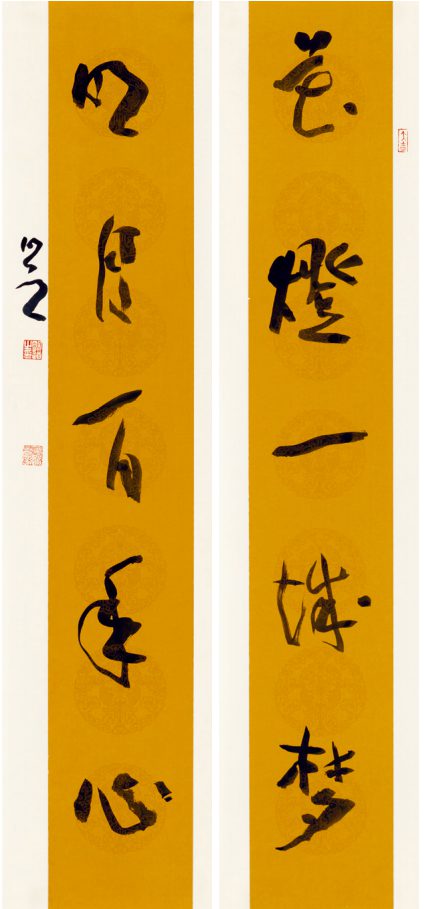 花燈一城梦
明月百年心